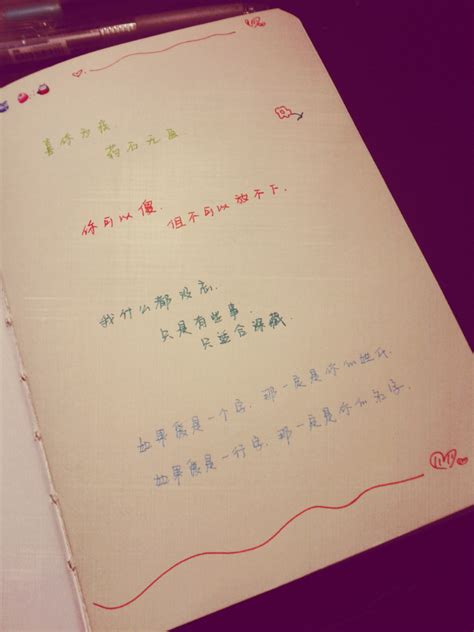 喜你为疾,
药石无医
你可以傻,
但不可以放不下.
我什么都没忘,
只是有些事
只适合深藏.
如果爱是一个字,那一定是你的姓氏.
如果爱是一行字,那一定是你的名字.